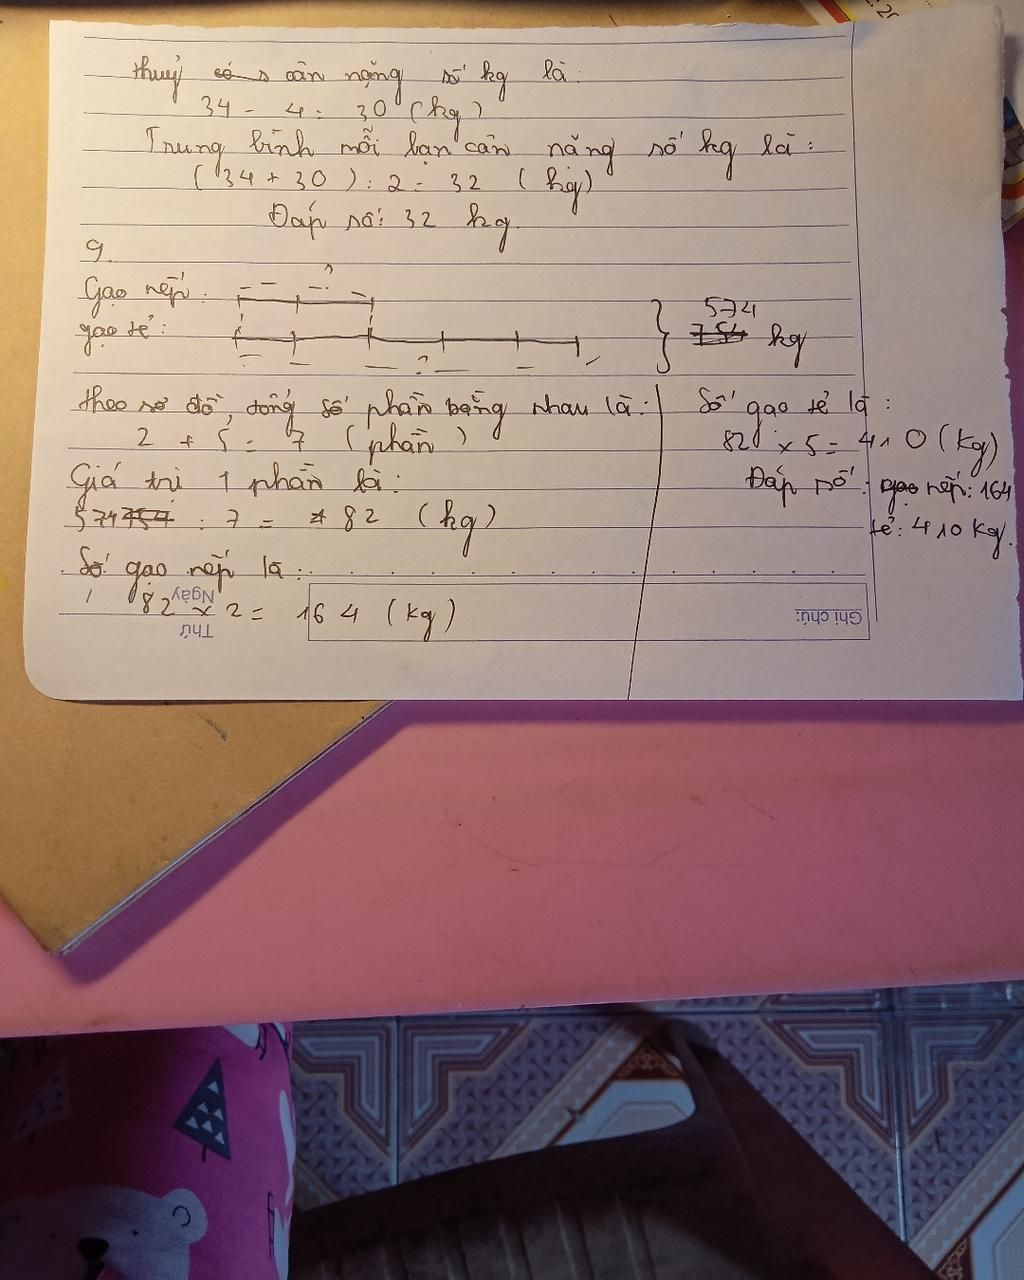 Thuỷ cân nặng số kg là:
34 - 4 = 30 (kg)
Trung bình mỗi bạn cân nặng số kg là:
(34 + 30) : 2 = 32 (kg)
Đáp số: 32 kg.
9.
Gạo nếp:
?
gạo tẻ:
?
574
754 kg
theo sơ đồ, tổng số phần bằng nhau là:
2 + 5 = 7 (phần)
Giá trị 1 phần là:
574 754 : 7 = 82 (kg)
Số gạo nếp là:
82 x 2 = 164 (kg)
Số gạo tẻ là:
82 x 5 = 410 (kg)
Đáp số: gạo nếp: 164
tẻ: 410 kg.
Ngày
Thứ
Ghi chú: